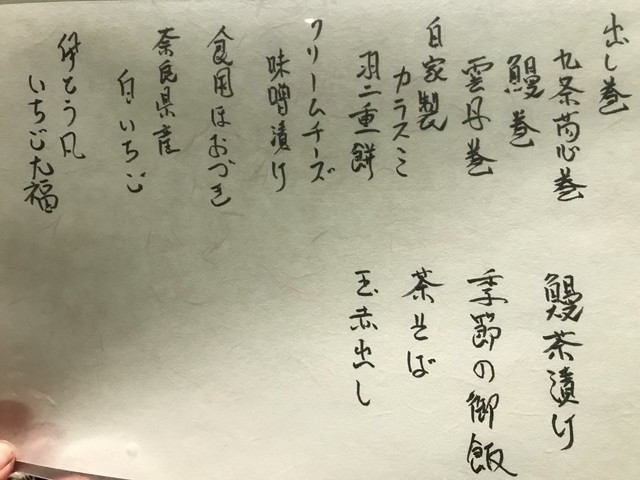 出し巻
九条葱巻
鰻巻
雲丹巻
自家製
カラスミ
羽二重餅
クリームチーズ
味噌漬け
食用ほおづき
奈良県産
白いちご
伊とう凡
いちご大福
鰻茶漬け
季節の御飯
茶そば
玉赤出し